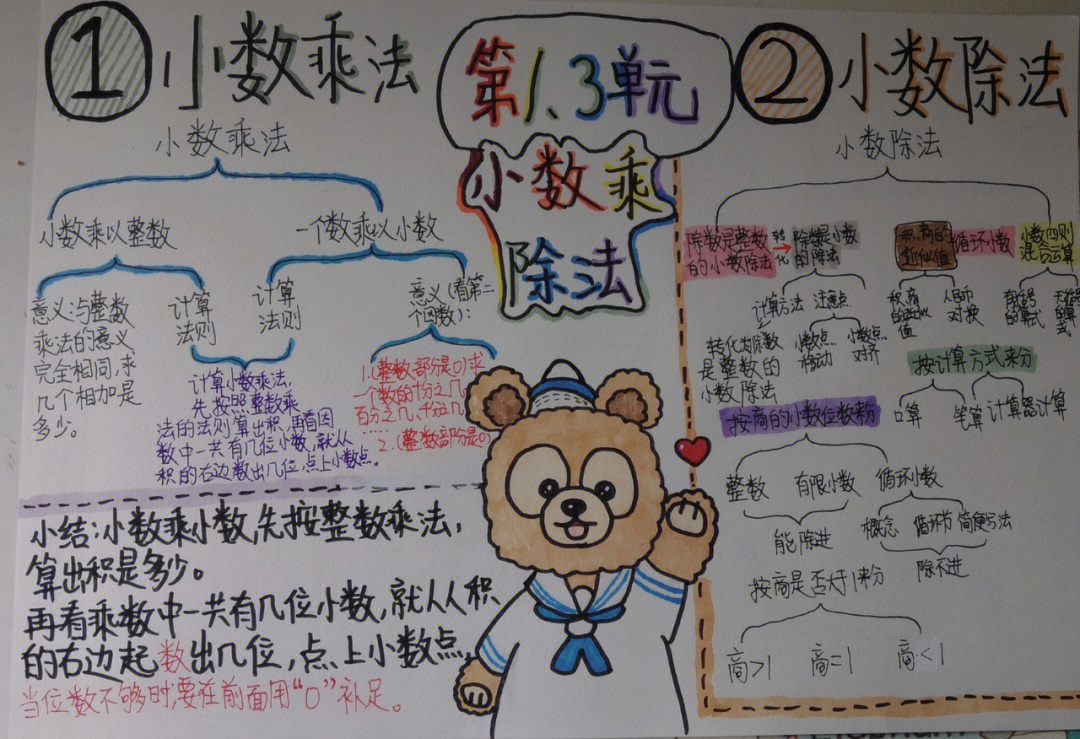 ① 小数乘法
第1、3单元
小数乘
除法
② 小数除法
小数乘法
小数乘以整数
一个数乘以小数
意义:与整数
乘法的意义
完全相同,求
几个相加是
多少。
计算
法则
计算
法则
意义(看第二
个因数):
计算小数乘法,
先按照整数乘
法的法则算出积,再看因
数中一共有几位小数,就从
积的右边数出几位,点上小数点。
1.(整数部分是0)求
一个数的十分之几
百分之几、千分之几
……
2.(整数部分是0)
小结:小数乘小数,先按整数乘法,
算出积是多少。
再看乘数中一共有几位小数,就从人积
的右边起数出几位,点上小数点,
当位数不够时,要在前面用“0”补足。
小数除法
除数是整数
的小数除法
转
化
除数是小数
的除法
积、商的
近似值
循环小数
小数四则
混合运算
计算方法
注意点
转化为除数
是整数的
小数除法
小数点
移动
小数点
对齐
积、商
的近似
值
人民币
对换
有括号
的算式
按计算方式来分
口算
笔算
计算器计算
按商的小数位数来分
整数
有限小数
循环小数
能除进
概念
循环节
简便写法
除不进
按商是否大于1来分
商>1
商=1
商<1